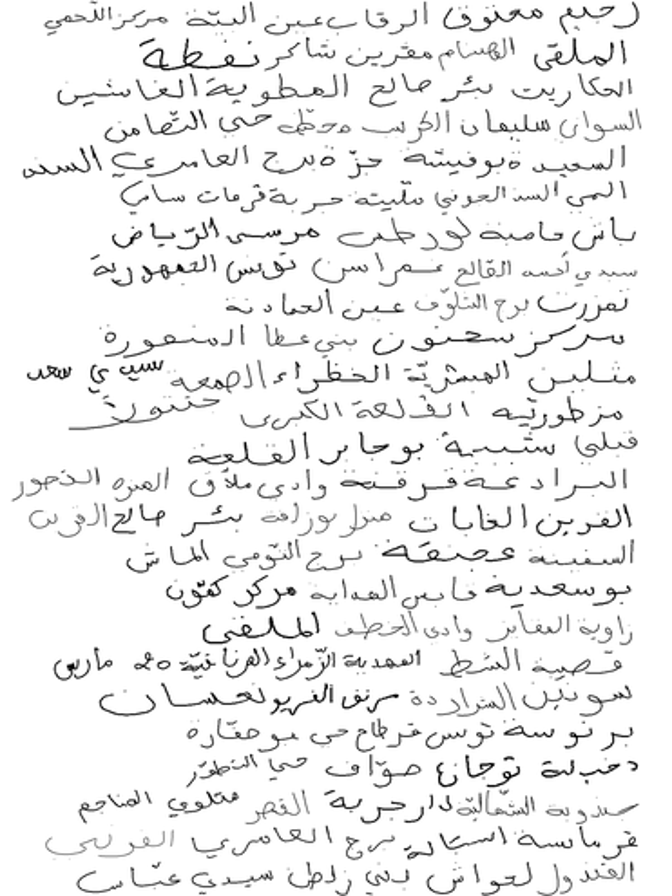 رحيم معتوق الرقاب عين البنّة مركز اللّحمي
الملقى الهسام مقرين شاكر نفطة
الحكاريت بئر صالح المطوية الغانمين
السواني سليمان الكريب محطّ حي التّضامن
السعيدة بوفيشة حزّة برج العامري السند
السد العوني مليتة جربة قرمات
باش حامبة مرسى الرّياض
سيدي أحمد القالع عمراسن تونس الجمهورية
تمزرت برج التلوّف عين الحمادنة
مركز سحنون بني عطا المنصورة
مثلين المبشريّة الخظراء الصمعة سيدي سعد
مزطورية القلعة الكبرى
قبلي شبيبة بوجابر القلعة
البرادعة قرقنة وادي ملاّق المنزه الذحور
القرين الغابات منزل بوزلفة بئر صالح
السفينة عجنقة برج التومي الماش
بوسعدية قابس الهداية مركز كمّون
زاوية وادي الخطف الملقى
قصيبة الشط المهدية الزّهراء 20 مارس
سونين الشرادة
برنوسة تونس قرطاج حي بوصفارة
دخيلة توجان صوّاف حي التطوّر
جندوبة الشّماليّة دار جربة القصر متلوي المناجم
قرمانسة برج العامري
القندول لحواش سيدي عبّاس